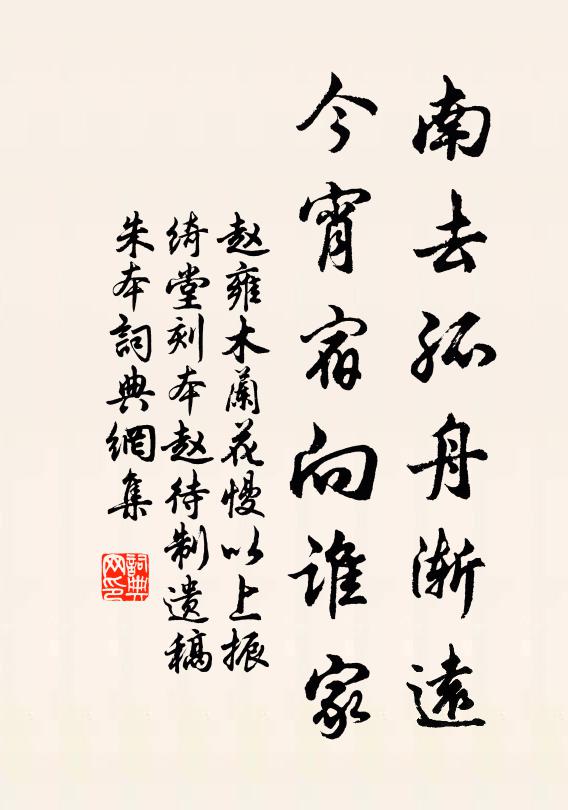 南去孤舟漸遠
今宵宿向誰家
赵雍木蘭花慢以上振
绮堂刻本赵待制遗稿
朱本詞典網集
詞典
网印